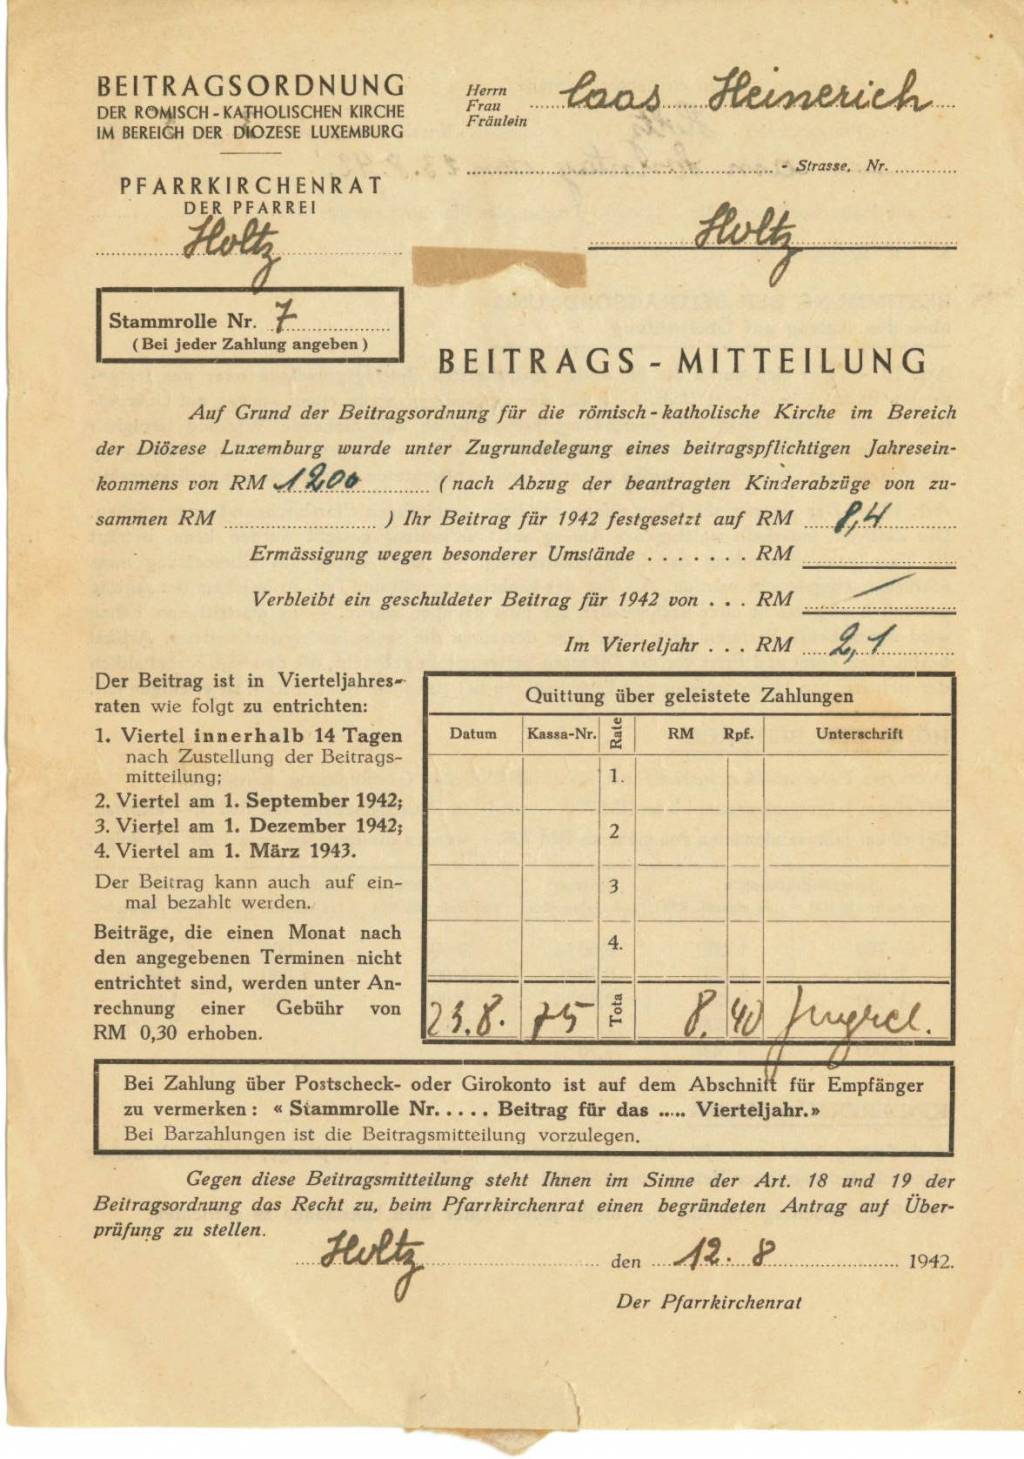 BEITRAGSORDNUNG
DER RÖMISCH-KATHOLISCHEN KIRCHE
IM BEREICH DER DIÖZESE LUXEMBURG
PFARRKIRCHENRAT
DER PFARREI
Holtz
Herrn
Frau
Fräulein
Caas Heinerich
- Strasse, Nr.
Holtz
Stammrolle Nr. 7
(Bei jeder Zahlung angeben)
BEITRAGS - MITTEILUNG
Auf Grund der Beitragsordnung für die römisch-katholische Kirche im Bereich
der Diözese Luxemburg wurde unter Zugrundelegung eines beitragspflichtigen Jahresein-
kommens von RM 1200 (nach Abzug der beantragten Kinderabzüge von zu-
sammen RM ) Ihr Beitrag für 1942 festgesetzt auf RM 8,4
Ermässigung wegen besonderer Umstände . . . . . . . RM
Verbleibt ein geschuldeter Beitrag für 1942 von . . . RM —
Im Vierteljahr . . . RM 2,1
Der Beitrag ist in Vierteljahres-
raten wie folgt zu entrichten:
1. Viertel innerhalb 14 Tagen
nach Zustellung der Beitrags-
mitteilung;
2. Viertel am 1. September 1942;
3. Viertel am 1. Dezember 1942;
4. Viertel am 1. März 1943.
Der Beitrag kann auch auf ein-
mal bezahlt werden.
Beiträge, die einen Monat nach
den angegebenen Terminen nicht
entrichtet sind, werden unter An-
rechnung einer Gebühr von
RM 0,30 erhoben.
Quittung über geleistete Zahlungen
Datum Kassa-Nr. Rate RM Rpf. Unterschrift
1.
2
3
4.
23.8. 75 Tota 8. 40
Bei Zahlung über Postscheck- oder Girokonto ist auf dem Abschnitt für Empfänger
zu vermerken: « Stammrolle Nr. . . . . Beitrag für das ..... Vierteljahr.»
Bei Barzahlungen ist die Beitragsmitteilung vorzulegen.
Gegen diese Beitragsmitteilung steht Ihnen im Sinne der Art. 18 und 19 der
Beitragsordnung das Recht zu, beim Pfarrkirchenrat einen begründeten Antrag auf Über-
prüfung zu stellen.
Holtz den 12. 8 1942.
Der Pfarrkirchenrat